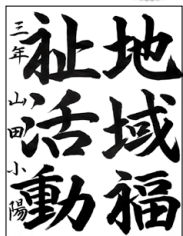 地域福
祉活動
三年 山田小陽